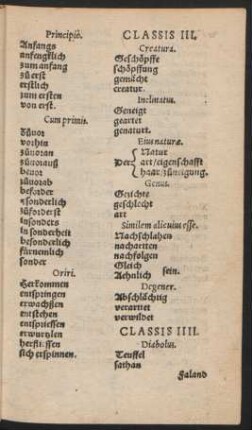 Principiò.
Anfangs
anfengklich
zum anfang
zů erst
erstlich
zum ersten
von erst.
Cum primis.
Zůuor
vorhin
zůuoran
zůuorauß
beuor
zůuorab
beforder
besonderlich
zůforderst
in sonders
in sonderheit
besonderlich
fürnemlich
sonder
Oriri.
Herkommen
entspringen
erwachßen
entstehen
entspriessen
erwurtzlen
herfliessen
sich erspinnen.
CLASSIS III.
Creatura.
Geschöpffe
schöpffung
gemächt
creatur.
Inclinatus.
Geneigt
geartet
genaturt.
Eius naturæ.
Der { Natur
art/eigenschafft
haar/zünsigung.
Genus.
Gerichte
geschlecht
art
Similem alicuius esse.
Nachschlahen
nacharten
nachfolgen
Gleich
Aehnlich sein.
Degener.
Abschlächtig
verartet
verwildet
CLASSIS IIII.
Diabolus.
Teuffel
sathan
Faland